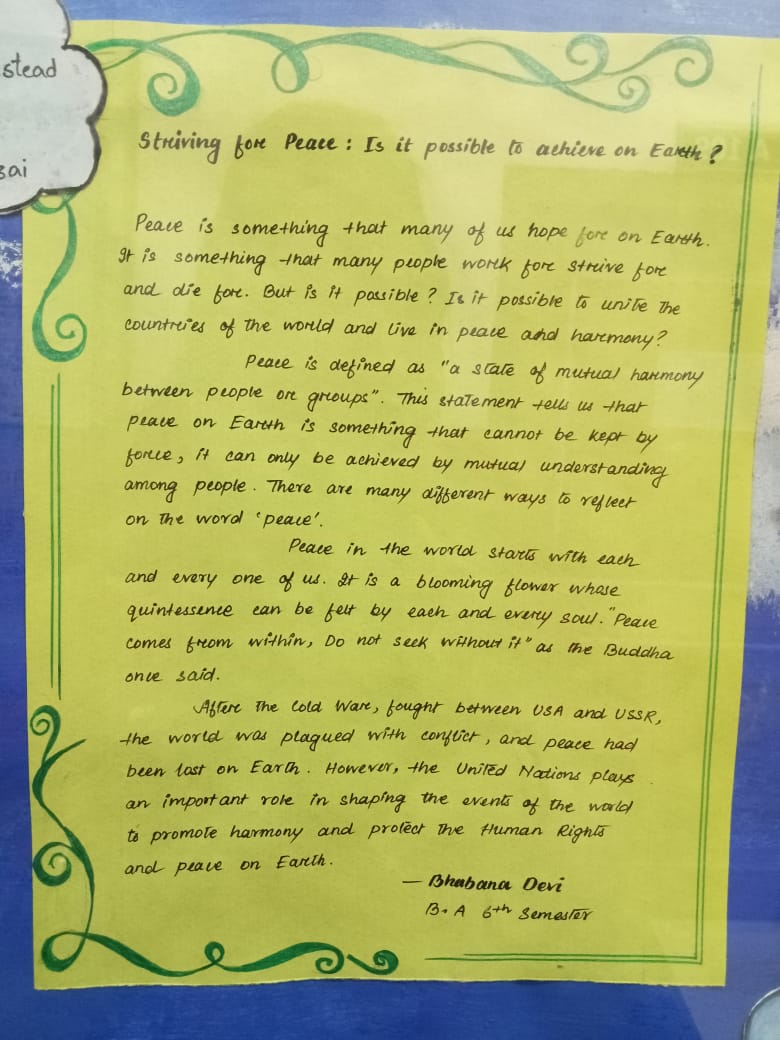 stead
sai
Striving for Peace : Is it possible to achieve on Earth ?
Peace is something that many of us hope for on Earth.
It is something that many people work for strive for
and die for. But is it possible ? Is it possible to unite the
countries of the world and live in peace and harmony?
Peace is defined as "a state of mutual harmony
between people or groups". This statement tells us that
peace on Earth is something that cannot be kept by
force, it can only be achieved by mutual understanding
among people. There are many different ways to reflect
on the word 'peace'.
Peace in the world starts with each
and every one of us. It is a blooming flower whose
quintessence can be felt by each and every soul. "Peace
comes from within, Do not seek without it" as the Buddha
once said.
After the Cold War, fought between USA and USSR,
the world was plagued with conflict, and peace had
been lost on Earth. However, the United Nations plays
an important role in shaping the events of the world
to promote harmony and protect the Human Rights
and peace on Earth.
— Bhabana Devi
B.A 6th Semester